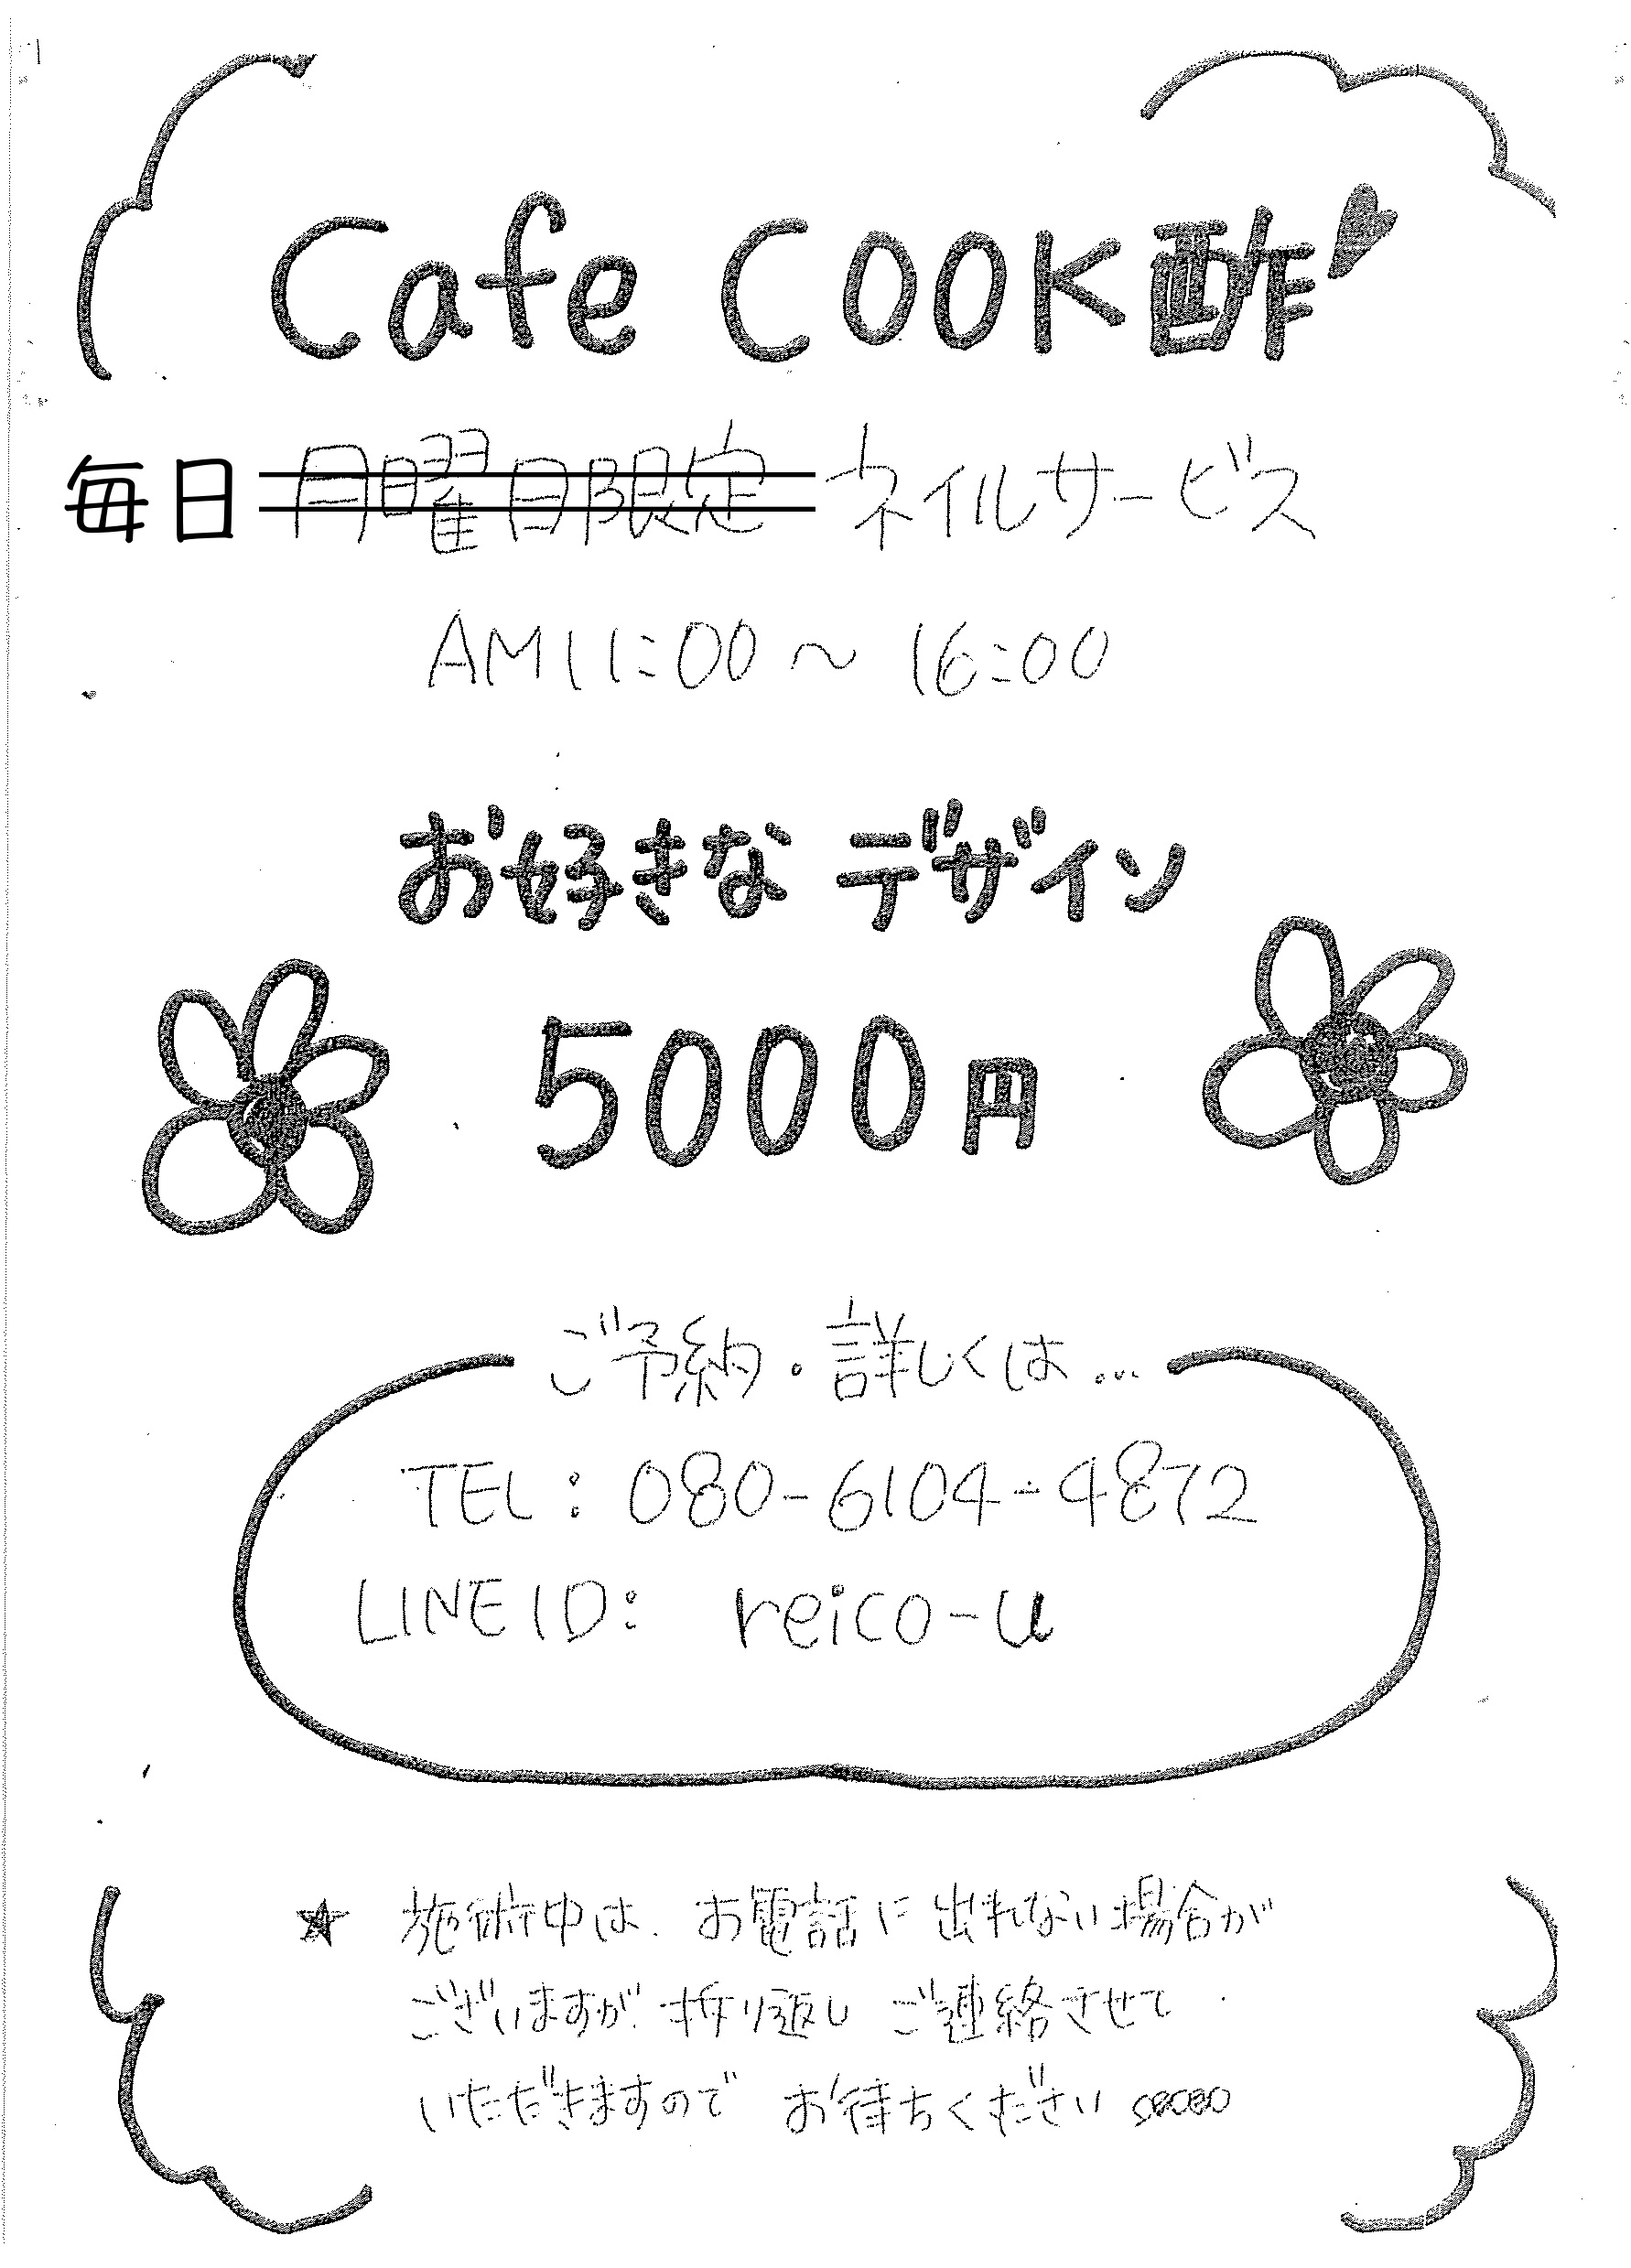 Cafe COOK酢
毎日 月曜日限定 ネイルサービス
AM11:00～16:00
お好きな デザイン
5000円
ご予約・詳しくは...
TEL: 080-6104-4872
LINE ID: reico-u
★ 施術中は、お電話に出れない場合が
ございますが、折り返し ご連絡させて
いただきますので お待ちください